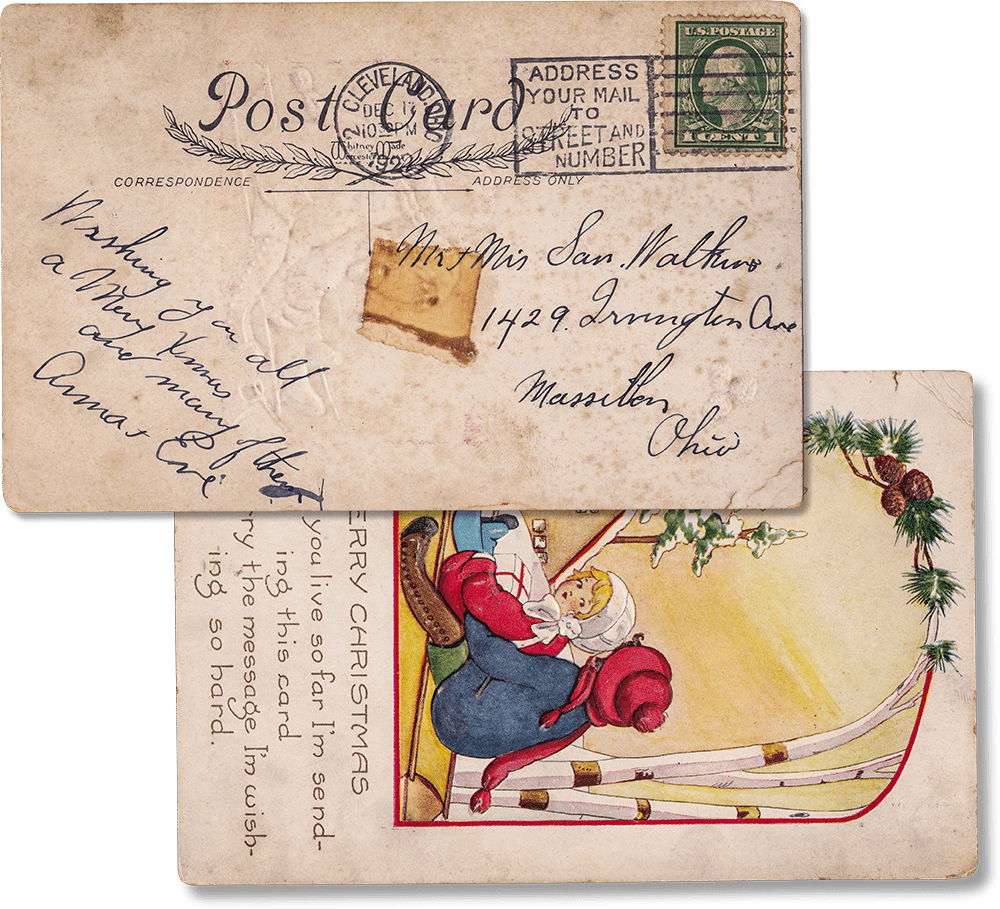 Post Card
CLEVELAND, OHIO
DEC 17
10 PM
Whitney Made
Worcester, Mass
ADDRESS
YOUR MAIL
TO
STREET AND
NUMBER
U.S. POSTAGE
1 CENT 1
CORRESPONDENCE
ADDRESS ONLY
Wishing you all
a Merry Xmas
and many of them
Anna + Evi
Mr + Mrs San. Watkins
1429. Irvington Ave
Massillon,
Ohio
ERRY CHRISTMAS
you live so far I'm send-
ing this card
rry the message I'm wish-
ing so hard.